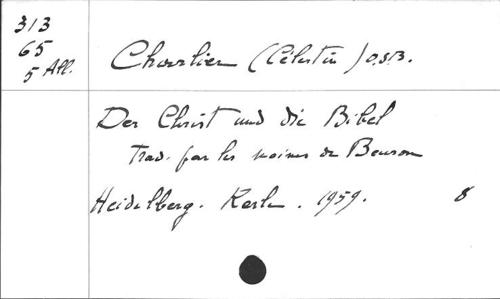 313
65
5 All.
Charlier (Célestin) O.S.B.
Der Christ und die Bibel
Trad. par les moines de Beuron
Heidelberg. Kerle. 1959. 8